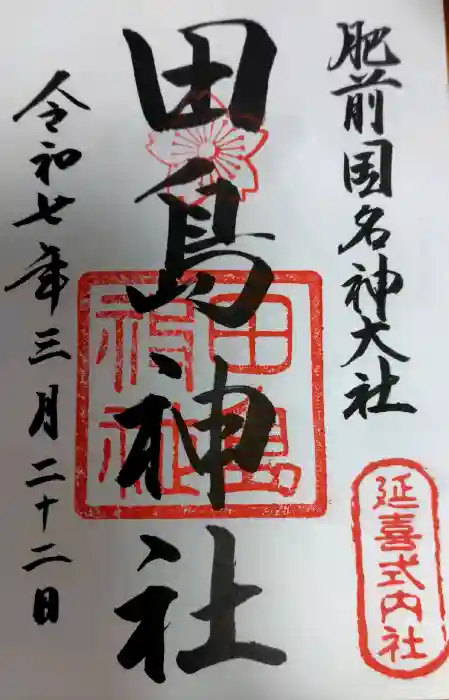 肥前国名神大社
延喜式内社
田島神社
田島
神社
令和七年三月二十二日